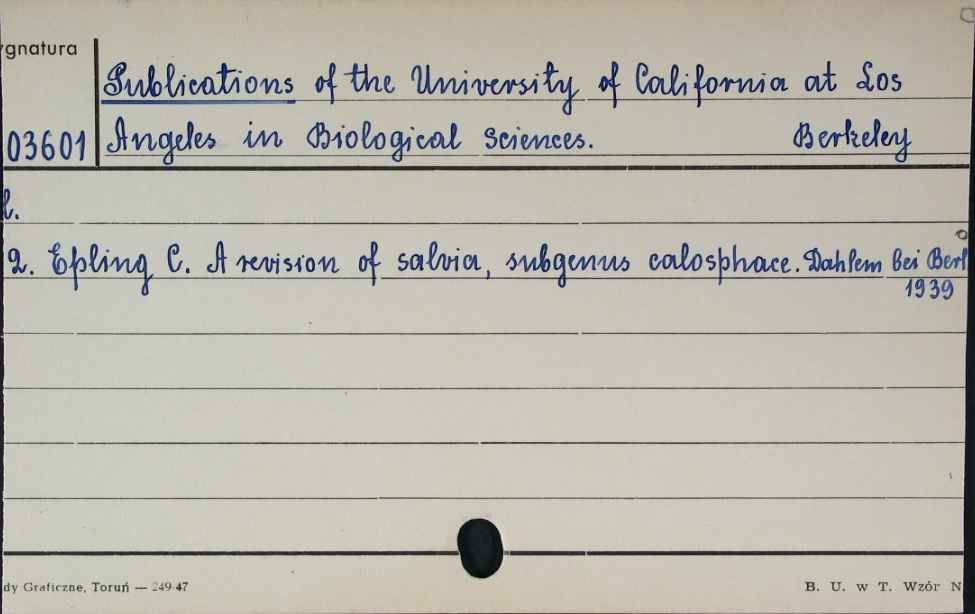 ygnatura
Publications of the University of California at Los
03601 Angeles in Biological Sciences. Berkeley
l.
2. Epling C. A revision of salvia, subgenus calosphace. Dahlem bei Berl
1939
dy Graficzne, Toruń — 249-47
B. U. w T. Wzór N